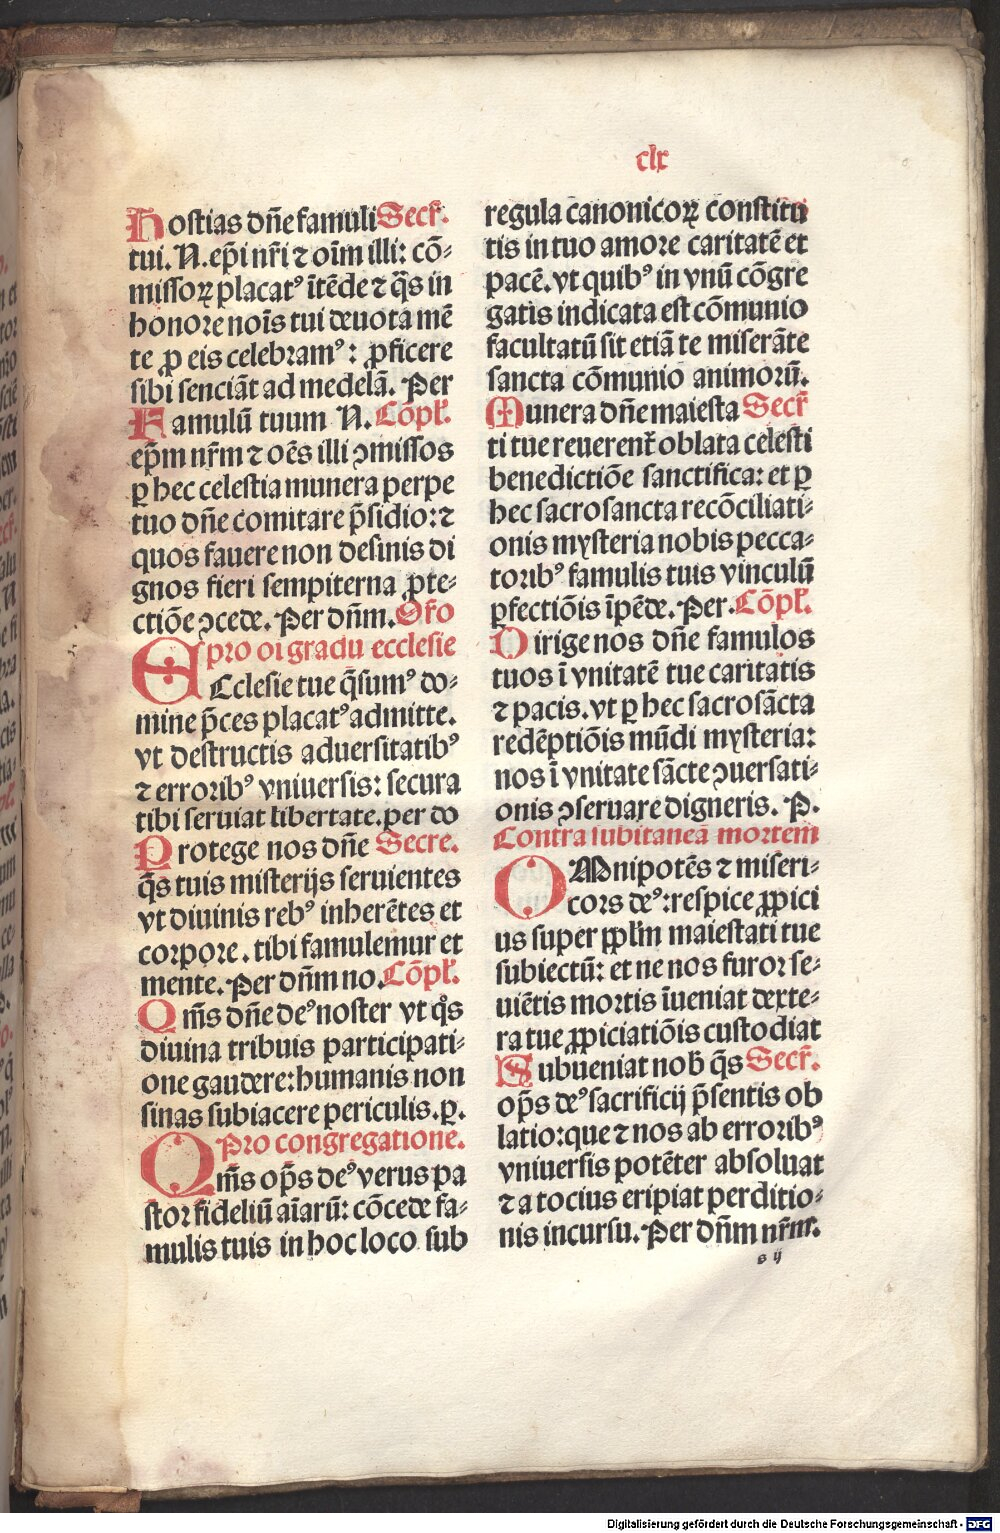 clx
Hostias dñe famuli Secr̃.
tui. N. ep̃i nr̃i ⁊ oĩm illi: cõ-
missoꝝ placatꝰ ĩtẽde ⁊ q̃s in
honore noĩs tui deuota mẽ
te ꝓ eis celebramꝰ: ꝓficere
sibi senciãt ad medelã. Per
Famulũ tuum N. Cõpl̃.
ep̃m nr̃m ⁊ oẽs illi ꝯmissos
ꝑ hec celestia munera perpe
tuo dñe comitare p̃sidio: ⁊
quos fauere non desinis di
gnos fieri sempiterna ꝓte-
ctiõe ꝯcede. Per dñm. Offo
pro oĩ gradu ecclesie
ECclesie tue q̃sumꝰ do-
mine p̃ces placatꝰ admitte.
vt destructis aduersitatibꝰ
⁊ erroribꝰ vniuersis: secura
tibi seruiat libertate. per do
Protege nos dñe Secre.
q̃s tuis misterijs seruientes
vt diuinis rebꝰ inherẽtes et
corpore. tibi famulemur et
mente. Per dñm no. Cõpl̃.
Qm̃s dñe deꝰ noster vt q̊s
diuina tribuis participati-
one gaudere: humanis non
sinas subiacere periculis. ꝑ.
Pro congregatione.
Qm̃s op̃s deꝰ verus pa
stor fideliũ aĩarũ: cõcede fa-
mulis tuis in hoc loco sub
regula canonicoꝝ constitu
tis in tuo amore caritatẽ et
pacẽ. vt quibꝰ in vnũ cõgre
gatis indicata est cõmunio
facultatũ sit etiã te miserãte
sancta cõmunio animorũ.
Munera dñe maiesta Secr̃
ti tue reuerent̃ oblata celesti
benedictiõe sanctifica: et ꝑ
hec sacrosancta recõciliati-
onis mysteria nobis pecca-
toribꝰ famulis tuis vinculũ
ꝑfectiõis ĩpẽde. Per. Cõpl̃.
Dirige nos dñe famulos
tuos ĩ vnitatẽ tue caritatis
⁊ pacis. vt ꝑ hec sacrosãcta
redẽptiõis mũdi mysteria:
nos ĩ vnitate sãcte ꝯuersati-
onis ꝯseruare digneris. P.
Contra subitaneã mortem
OMnipotẽs ⁊ miseri-
cors deꝰ: respice ꝓpici
us super pp̃l̃m maiestati tue
subiectũ: et ne nos furor se-
uiẽtis mortis ĩueniat dexte-
ra tue ꝓpiciatiõis custodiat
Subueniat nob̃ q̃s Secr̃.
op̃s deꝰ sacrificij p̃sentis ob
latio: que ⁊ nos ab erroribꝰ
vniuersis potẽter absoluat
⁊ a tocius eripiat perditio-
nis incursu. Per dñm nr̃m.
s ij
Digitalisierung gefördert durch die Deutsche Forschungsgemeinschaft - DFG